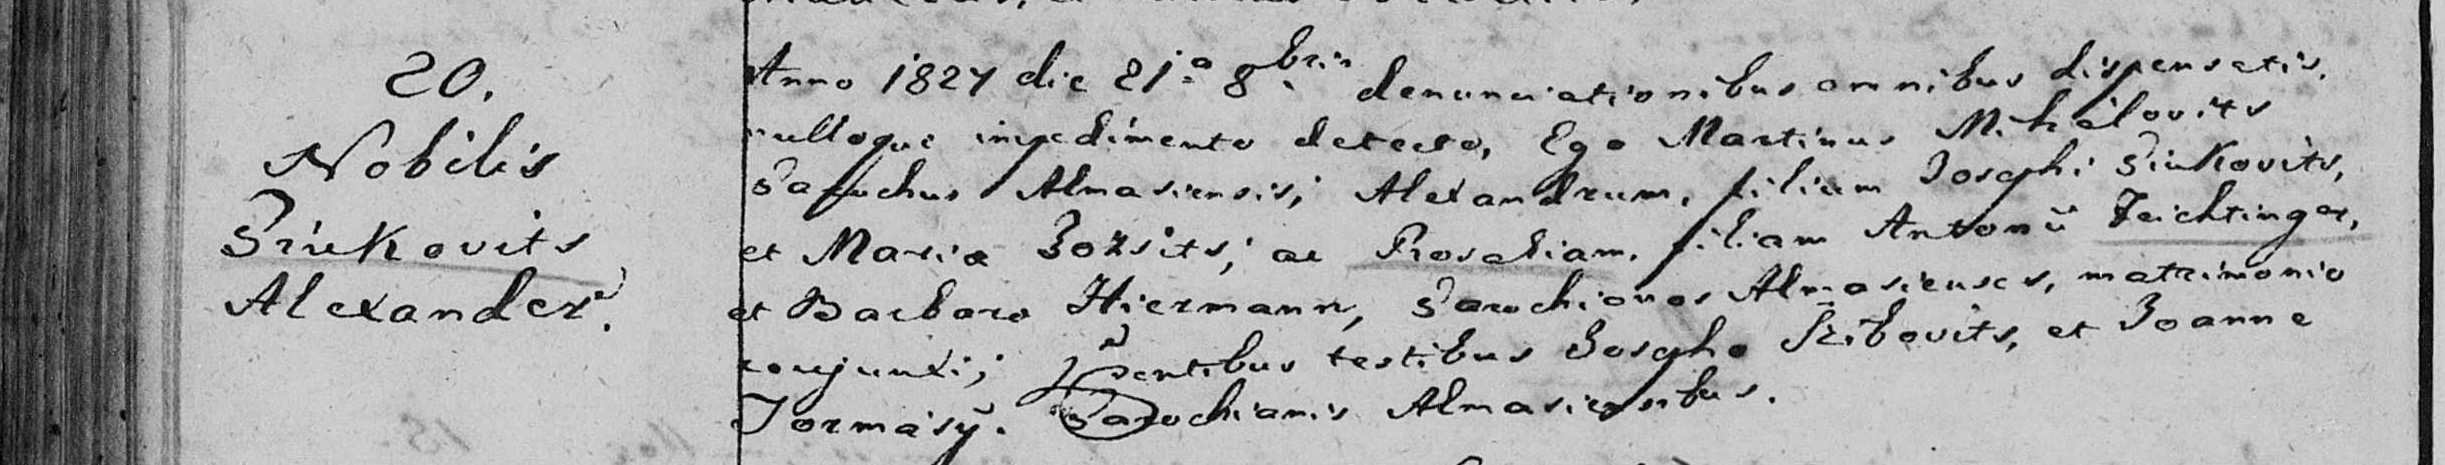 20.
Nobilis
Pinkovits
Alexander.
Anno 1827 die 21a 8bris denunciationibus omnibus dispensatis,
nulloque impedimento detecto, Ego Martinus Mihálovits
Parochus Almasiensis, Alexandrum, filium Josephi Pinkovits,
et Maria ac Rosaliam, filiam Antonii Feichtinger,
et Barbara Hiermann, Parochianos Almasienses, matrimonio
conjunxi; psentibus testibus Josepho et Joanne
Tormásÿ. Parochianis Almasiensibus.